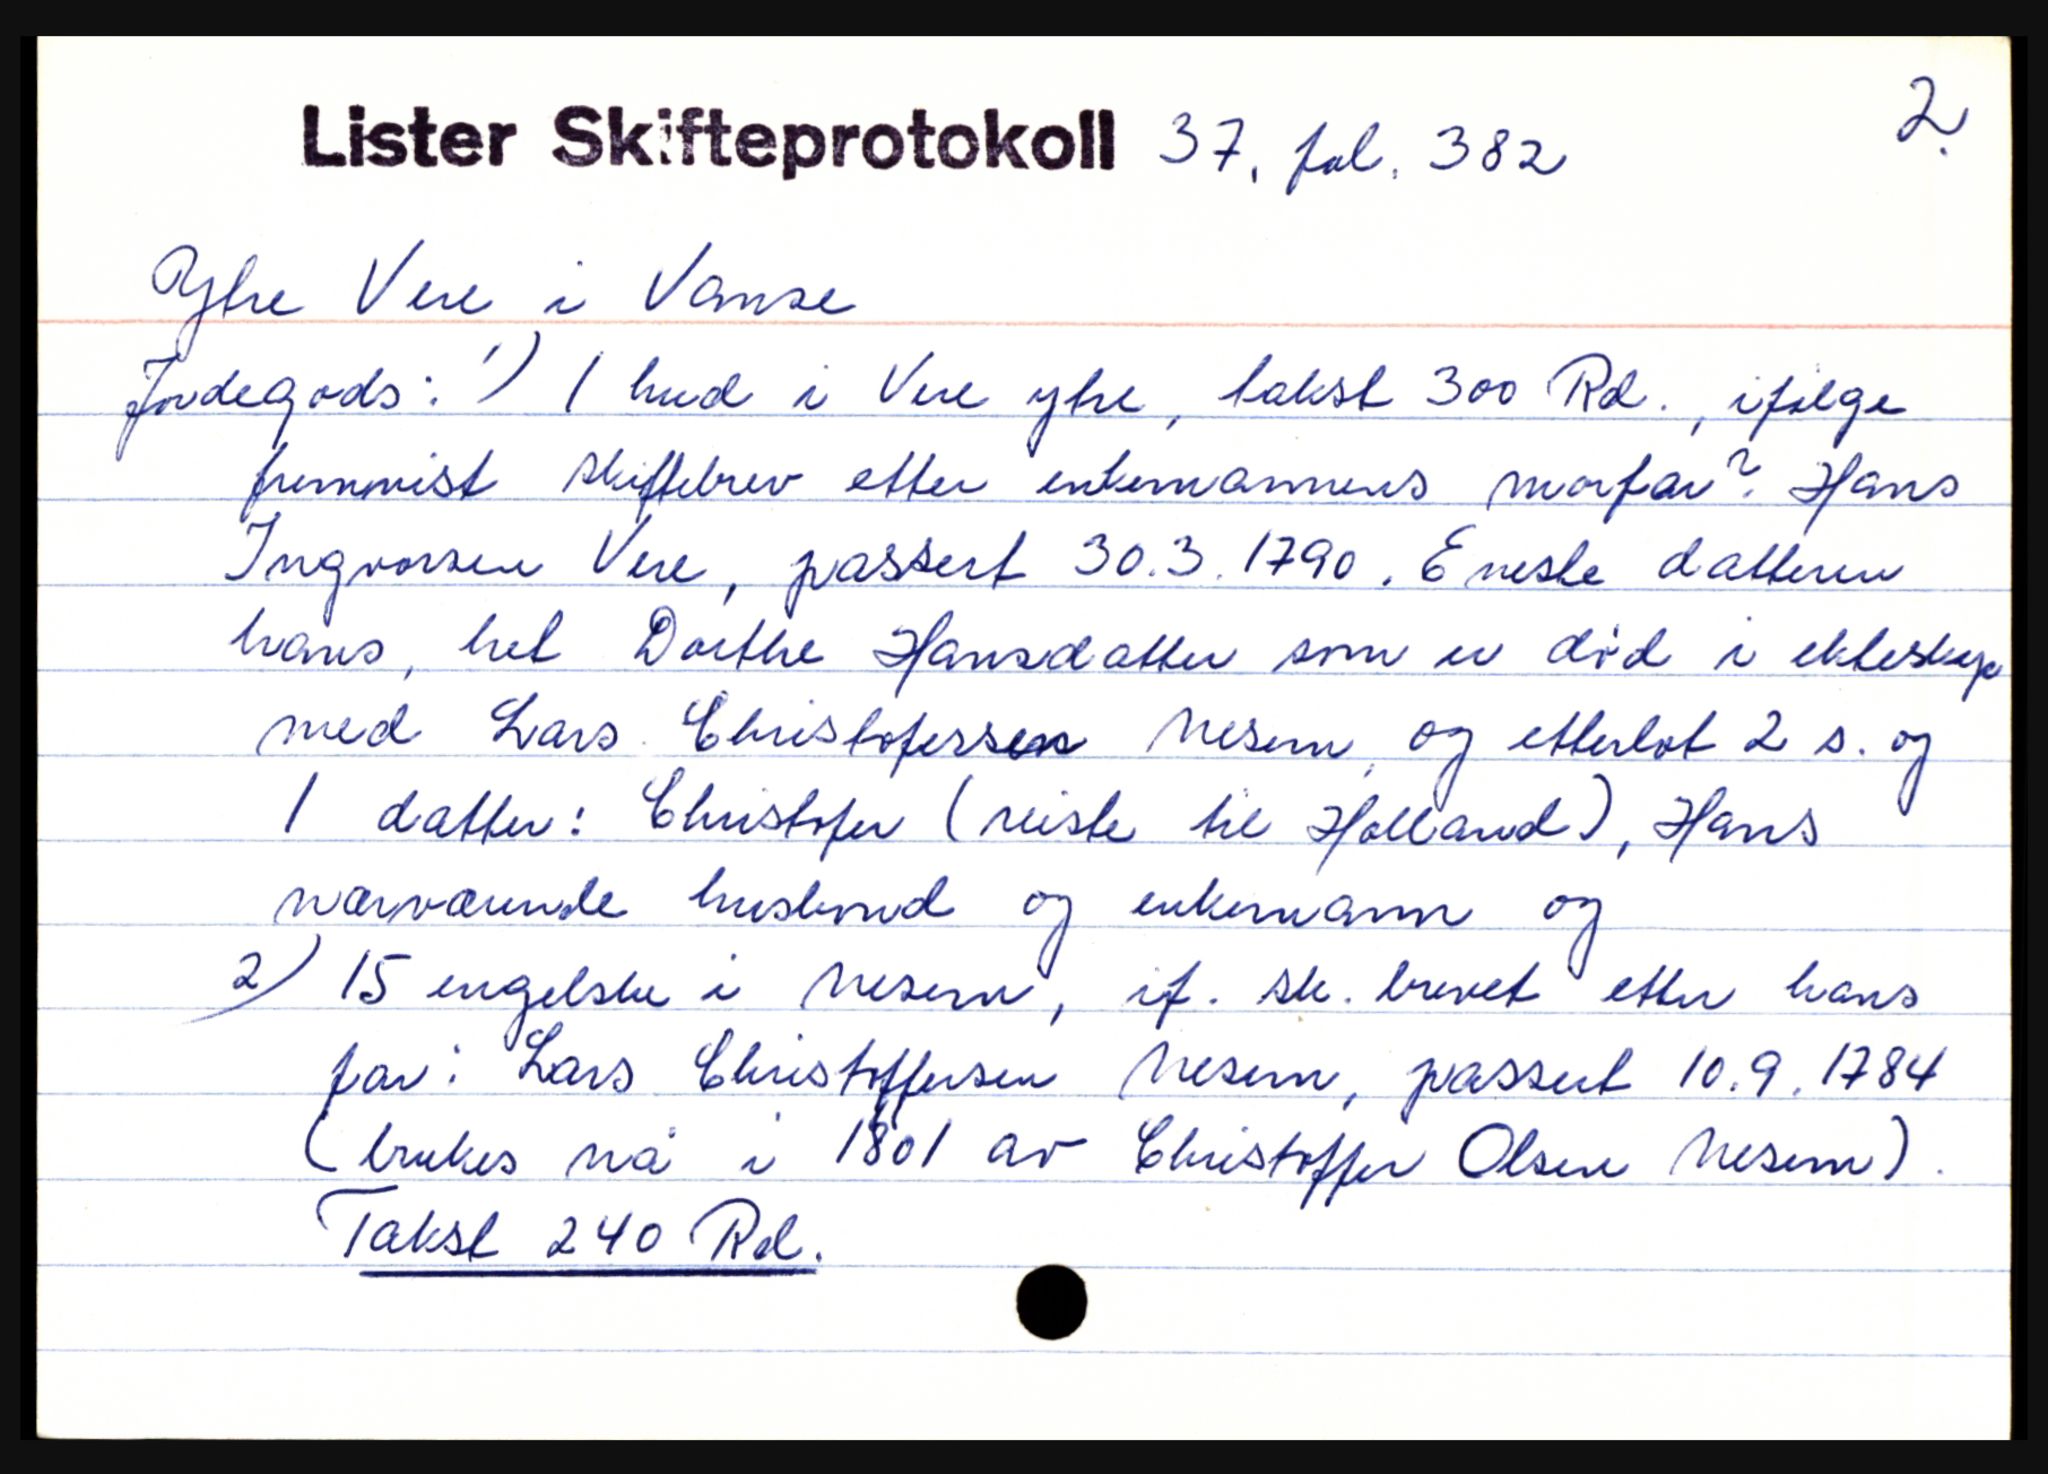 2.
Lister Skifteprotokoll 37, fol. 382
Ytre Vere i Vanse
Jordegods: 1) 1 hud i Vere ytre, takst 300 Rd., ifølge
fremvist skiftebrev etter enkemannens morfar? Hans
Ingvorsen Vere, passert 30.3.1790. Eneste datteren
hans, het Dorthe Hansdatter som er död i ekteskap
med Lars Christofersen Nesem, og etterlot 2 s. og
1 datter: Christofer (reiste til Holland), Hans
nærværende husbond og enkemann og
2) 15 engelske i Nesem, if. sk. brevet etter hans
far: Lars Christoffersen Nesem, passert 10.9.1784
(brukes nå i 1801 av Christoffer Olsen Nesem).
Takst 240 Rd.